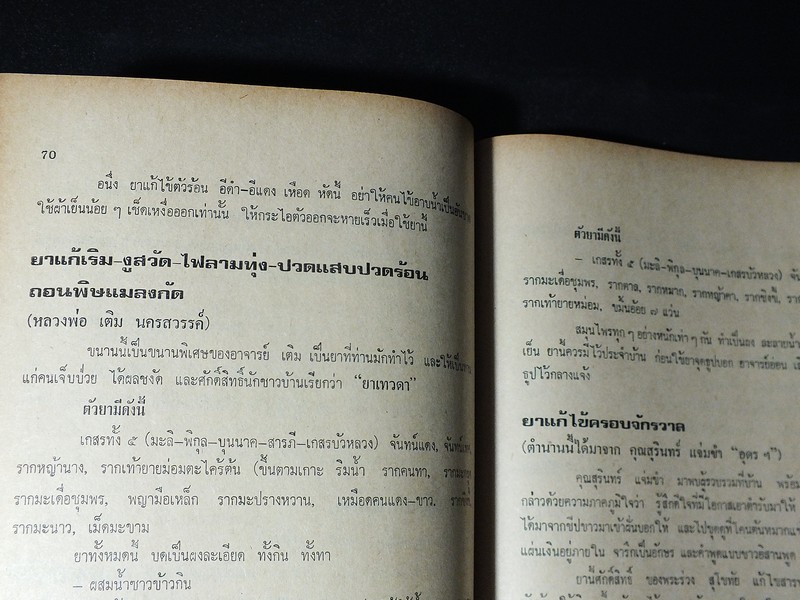 70
อนึ่ง ยาแก้ไข้ตัวร้อน อีดำ-อีแดง เหือด หัดนี้ อย่าให้คนไข้อาบน้ำเป็นอัน
ใช้ผ้าเย็นน้อย ๆ เช็ดเหงื่อออกเท่านั้น ให้กระไอตัวออกจะหายเร็วเมื่อใช้ยานี้
ยาแก้เริม-งูสวัด-ไฟลามทุ่ง-ปวดแสบปวดร้อน
ถอนพิษแมลงกัด
(หลวงพ่อ เติม นครสวรรค์)
ขนานนี้เป็นขนานพิเศษของอาจารย์ เติม เป็นยาที่ท่านมักทำไว้ และให้เป็น
แก่คนเจ็บป่วย ได้ผลชงัด และศักดิ์สิทธิ์นักชาวบ้านเรียกว่า "ยาเทวดา"
ตัวยามีดังนี้
เกสรทั้ง ๕ (มะลิ-พิกุล-บุนนาค-สารภี-เกสรบัวหลวง) จันทน์แดง,
รากหญ้านาง, รากเท้ายายม่อมตะไคร้ต้น (ขึ้นตามเกาะ ริมน้ำ รากคนทา,
รากมะเดื่อชุมพร, พญามือเหล็ก รากมะปรางหวาน, เหมือดคนแดง-ขาว,
รากมะนาว, เม็ดมะขาม
ยาทั้งหมดนี้ บดเป็นผงละเอียด ทั้งกิน ทั้งทา
- ผสมน้ำซาวข้าวกิน
ตัวยามีดังนี้
- เกสรทั้ง ๕ (มะลิ-พิกุล-บุนนาค-เกสรบัวหลวง)
รากมะเดื่อชุมพร, รากตาล, รากหมาก, รากหญ้าคา, รากขิงชี้,
รากเท้ายายหม่อม, ขมิ้นอ้อย ๗ แว่น
สมุนไพรทุก ๆ อย่างหนักเท่า ๆ กัน ทำเป็นผง ละลายน้ำ
เย็น ยานี้ควรมีไว้ประจำบ้าน ก่อนใช้ยาจุดธูปบอก อาจารย์อ่อน
ธูปไว้กลางแจ้ง
ยาแก้ไข้ครอบจักรวาล
(ตำนานนี้ได้มาจาก คุณสุรินทร์ แจ่มขำ "อุตร ฯ")
คุณสุรินทร์ แจ่มขำ มาพบผู้รวบรวมที่บ้าน พร้อม
กล่าวด้วยความภาคภูมิใจว่า รู้สึกดีใจที่มีโอกาสเอาตำรับมาให้
ได้มาจากชีปขาวมาเข้าฝันบอกให้ และไปขุดดูที่โคนต้นหมาก
แผ่นเงินอยู่ภายใน จารึกเป็นอักษร และคำพูดแบบชาวอีสานพูด
ยานี้ศักดิ์สิทธิ์ ของพระร่วง สุโขทัย แก้ไขสาร